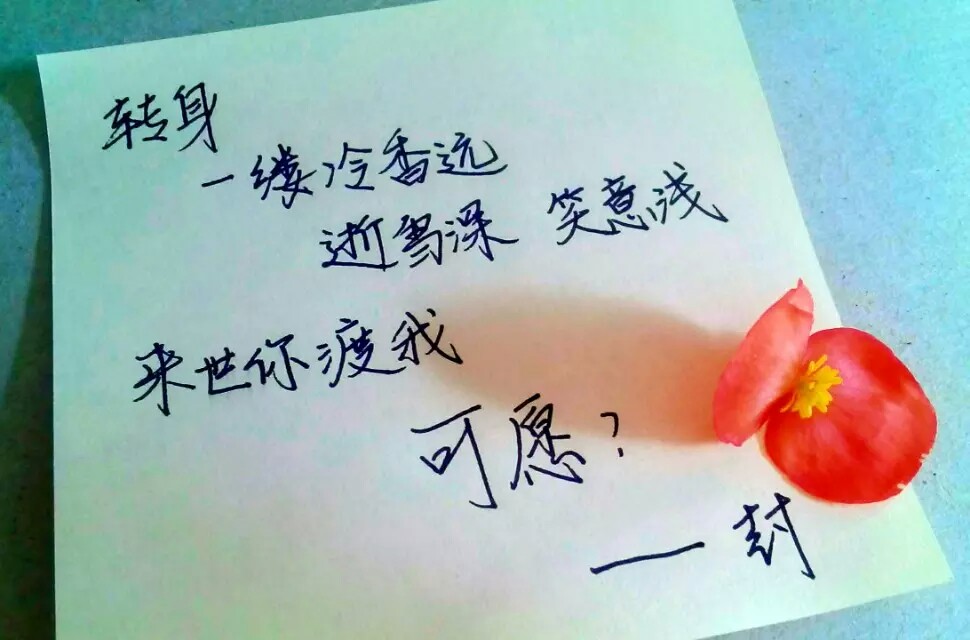 转身
一缕冷香远
逝雪深 笑意浅
来世你渡我
可愿?
——封